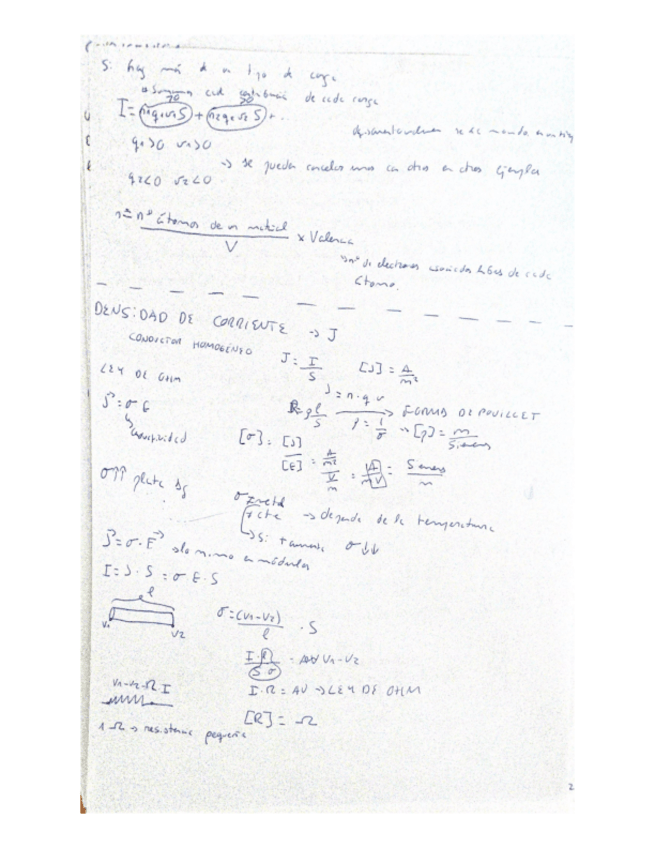 Si hay más de un tipo de carga
Sumamos cada contribución de cada carga
I = n₁q₁v₁S + n₂q₂v₂S + ..
>0 >0
q₁>0 v₁>0
→ se pueden cancelar unos con otros en otros ejemplos
q₂<0 v₂<0
n = nº átomos de un material / V × Valencia
nº de electrones libres de cada
átomo.
DENSIDAD DE CORRIENTE → J
CONDUCTOR HOMOGÉNEO
J = I/S [J] = A/m²
J = n·q·v
LEY DE OHM
R = ρl/S → FORMA DE POUILLET
ρ = 1/σ → [ρ] = m/Siemens
J = σ E
conductividad
[σ] = [J]/[E] = (A/m²)/(V/m) = A/mV = Siemens/m
σ↑↑ plata Ag
σ metal
cte → depende de la temperatura
→ Si T aumenta σ↓↓
J = σ·E → lo mismo en módulos
I = J·S = σ E·S
l
V₁ V₂
σ = (V₁-V₂)/l · S
I·l/(S·σ) = V₁-V₂
V₁-V₂ = R I
I·R = ΔV → LEY DE OHM
[R] = Ω
1 Ω → resistencia pequeña
2